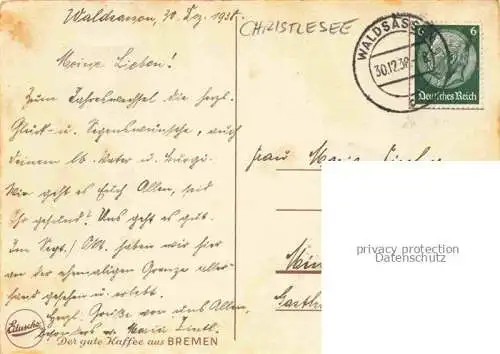 Waldsassen, 30. Dez. 1938.
CHRISTLESEE
WALDSASSEN
30.12.38
6
Deutsches Reich
Meine Lieben!
Zum Jahreswechsel die herzl.
Glück- u. Segenswünsche, auch
deinem lb. Vater u. Burgi.
Wie geht es Euch Allen, seid
Ihr gesund? Uns geht es gut.
Im Sept./Okt. haben wir hier
an der ehemaligen Grenze aller-
hand gesehen u. erlebt.
Herzl. Grüße von uns Allen,
besonders v. Maria
Frau Maria
privacy protection
Datenschutz
Eduscho
Der gute Kaffee aus BREMEN